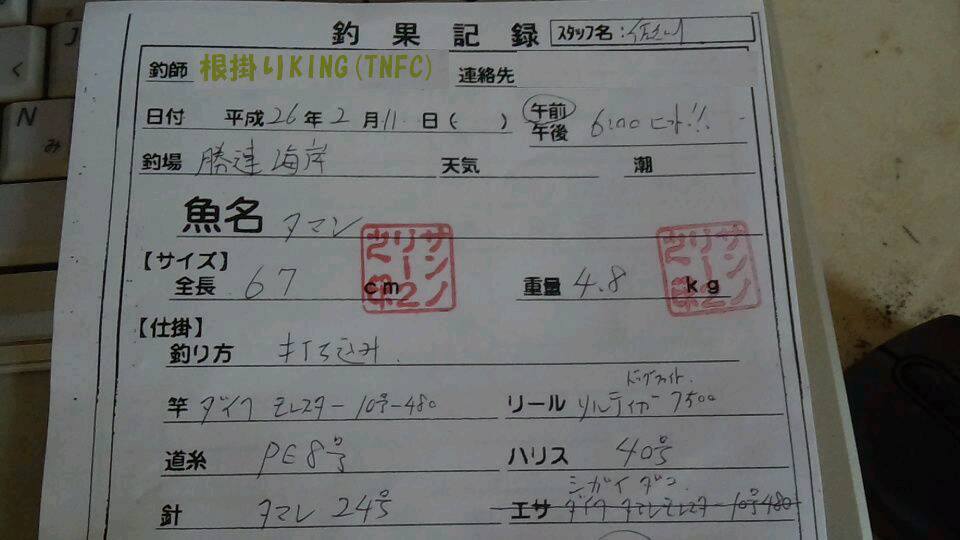 釣果記録 スタッフ名:
釣師 根掛りKING(TNFC) 連絡先
日付 平成26年2月11日( ) 午前 午後 6:00 ヒット!!
釣場 勝連海岸 天気 潮
魚名 タマン
【サイズ】
全長 67 cm 重量 4.8 kg
【仕掛】
釣り方 打ち込み
ドッグファイト
竿 ダイワ モンスター 10号-480 リール ソルティガ 7500
道糸 PE8号 ハリス 40号
シガイダコ
針 タマン 24号 エサ ダイワ タマンモンスター 10号480